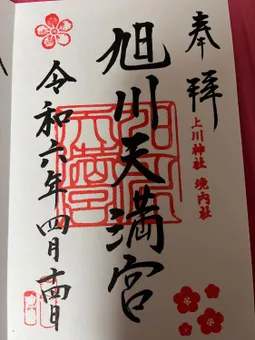 奉拝
上川神社 境内社
旭川天満宮
令和六年四月